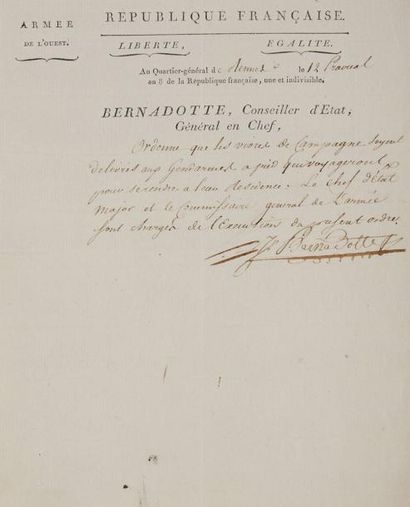 ARMÉE
DE L'OUEST.
REPUBLIQUE FRANÇAISE.
LIBERTÉ, EGALITÉ.
Au Quartier-général de Rennes le 12 Prairial
an 8 de la République française, une et indivisible.
BERNADOTTE, Conseiller d'Etat,
Général en Chef,
Ordonne que les vivres de Campagne soyent
délivrés aux Gendarmes a pied qui voyageront
pour se rendre a leur résidence. Le Chef d'Etat
Major et le Commissaire general de L'armée
sont chargés de l'Execution du présent ordre.
J. Bernadotte